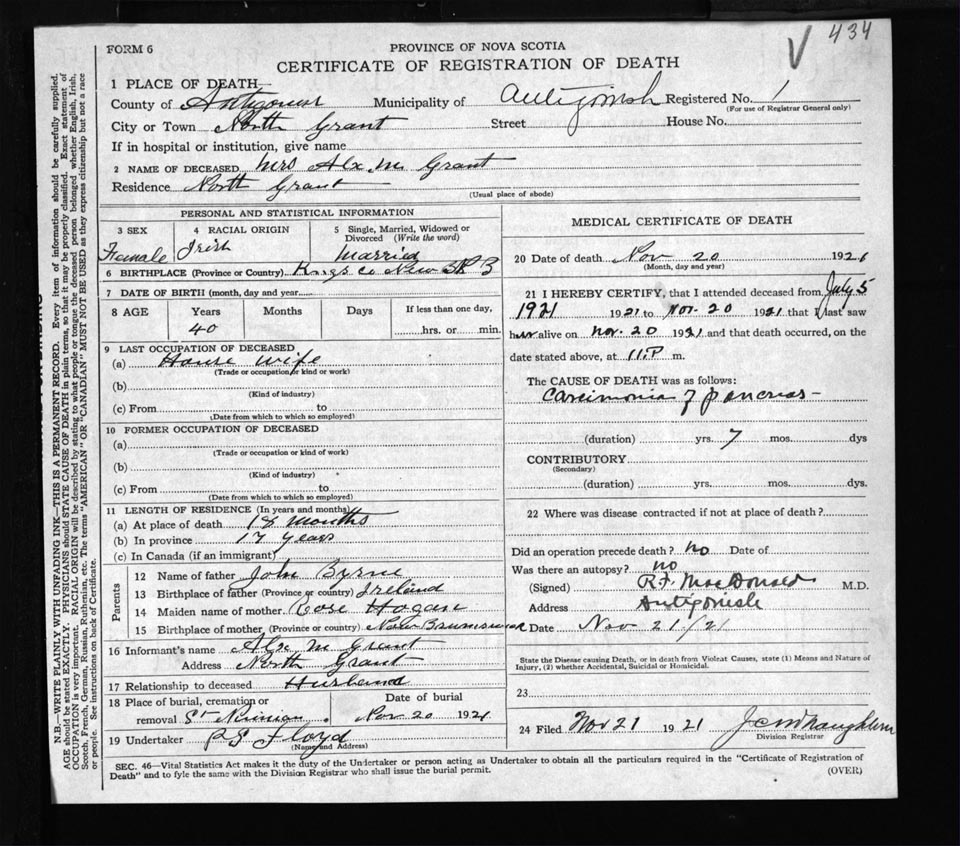 434
V
FORM 6
PROVINCE OF NOVA SCOTIA
CERTIFICATE OF REGISTRATION OF DEATH
1 PLACE OF DEATH
County of Antigonish Municipality of Antigonish Registered No. 1
(For use of Registrar General only)
City or Town North Grant Street House No.
If in hospital or institution, give name
2 NAME OF DECEASED Mrs Alx. M. Grant
Residence North Grant
(Usual place of abode)
PERSONAL AND STATISTICAL INFORMATION
3 SEX 4 RACIAL ORIGIN 5 Single, Married, Widowed or
Divorced (Write the word)
Female Irish Married
6 BIRTHPLACE (Province or Country) Kings Co New B
7 DATE OF BIRTH (month, day and year)
8 AGE Years Months Days If less than one day,
40 hrs. or min.
9 LAST OCCUPATION OF DECEASED
(a) House wife
(Trade or occupation or kind of work)
(b)
(Kind of industry)
(c) From to
(Date from which to which so employed)
10 FORMER OCCUPATION OF DECEASED
(a)
(Trade or occupation or kind of work)
(b)
(Kind of industry)
(c) From to
(Date from which to which so employed)
11 LENGTH OF RESIDENCE (In years and months)
(a) At place of death 18 months
(b) In province 17 years
(c) In Canada (if an immigrant)
Parents
12 Name of father John Byrne
13 Birthplace of father (Province or country) Ireland
14 Maiden name of mother Rose Hogan
15 Birthplace of mother (Province or country) New Brunswick
16 Informant's name Alx M Grant
Address North Grant
17 Relationship to deceased Husband
18 Place of burial, cremation or Date of burial
removal St Ninian Nov 20 1921
19 Undertaker P S Floyd
(Name and Address)
MEDICAL CERTIFICATE OF DEATH
20 Date of death Nov 20 1921
(Month, day and year)
21 I HEREBY CERTIFY, that I attended deceased from July 5
1921 1921 to Nov. 20 1921 that I last saw
her alive on Nov. 20 1921 and that death occurred, on the
date stated above, at 11.P m.
The CAUSE OF DEATH was as follows:
Carcimonia of pancreas
(duration) yrs. 7 mos. dys
CONTRIBUTORY
(Secondary)
(duration) yrs. mos. dys.
22 Where was disease contracted if not at place of death?
Did an operation precede death? no Date of
Was there an autopsy? no
(Signed) R.F. MacDonald M.D.
Address Antigonish
Date Nov 21/21
State the Disease causing Death, or in death from Violent Causes, state (1) Means and Nature of
Injury, (2) whether Accidental, Suicidal or Homicidal.
23
24 Filed Nov 21 1921
Division Registrar
SEC. 46—Vital Statistics Act makes it the duty of the Undertaker or person acting as Undertaker to obtain all the particulars required in the "Certificate of Registration of
Death" and to fyle the same with the Division Registrar who shall issue the burial permit.
(OVER)
N.B.—WRITE PLAINLY WITH UNFADING INK—THIS IS A PERMANENT RECORD. Every item of information should be carefully supplied.
AGE should be stated EXACTLY. PHYSICIANS should STATE CAUSE OF DEATH in plain terms, so that it may be properly classified. Exact statement of
OCCUPATION is very important. RACIAL ORIGIN will be described by stating to what people or tongue the deceased person belonged whether English, Irish,
Scotch, French, German, Russian, Ruthenian, etc. The terms "AMERICAN" OR "CANADIAN" MUST NOT BE USED as they express citizenship but not a race
or people. See instructions on back of Certificate.